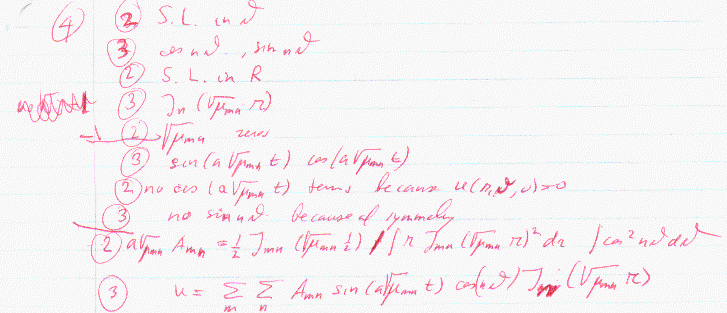 ④ ② S. L. in ϑ
③ cos nϑ , sin nϑ
② S. L. in R
③ Jn (√μmn r)
-1 ② √μmn zeros
③ sin (a √μmn t) cos (a √μmn t)
② no cos (a √μmn t) terms because u(r,ϑ,0)=0
③ no sin nϑ because of symmetry
② a√μmn Amn = 1/2 Jmn (√μmn 1/2) / ∫ r Jmn (√μmn r)² dr ∫ cos² nϑ dϑ
③ u = Σm Σn Amn sin (a√μmn t) cos(nϑ) Jn (√μmn r)